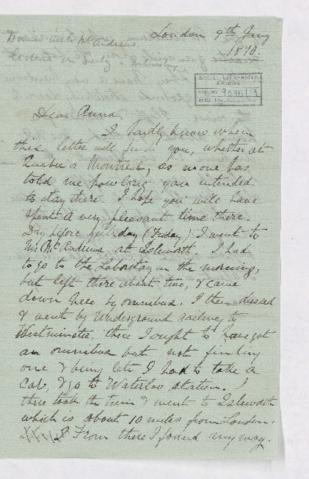 London 9th Aug
1870.
Dear Anna
I hardly know where
this letter will find you, whether at
Quebec or Montreal, as no one has
told me how long you intended
to stay there. I hope you will have
spent a very pleasant time there.
Day before yesterday (Friday) I went to
at Isleworth. I had
to go to the Laboratory in the morning,
but left there about two, & came
down here by omnibus. I then dressed
& went by Underground railway to
Westminster, there I ought to have got
an omnibus but not finding
one & being late I had to take a
cab, & go to Waterloo station. I
there took the train & went to Isleworth
which is about 10 miles from London.
From there I found my way.